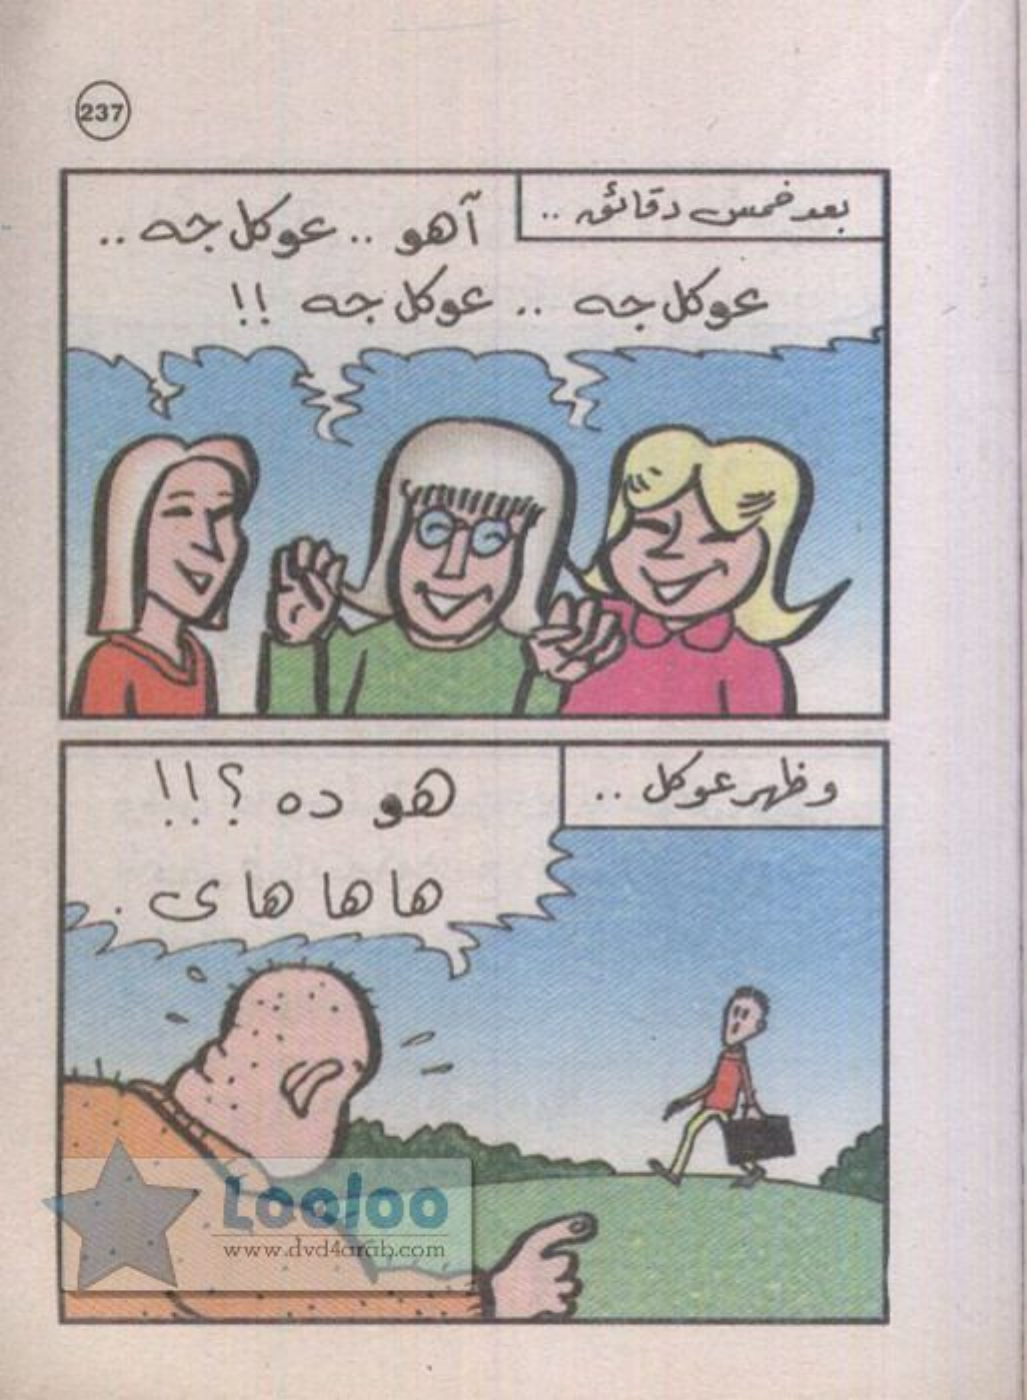 237
بعد خمس دقائق ..
آهو .. عوكل جه ..
عوكل جه .. عوكل جه !!
وظهر عوكل ..
هو ده ؟!!
ها ها هاى .
Looloo
www.dvd4arab.com